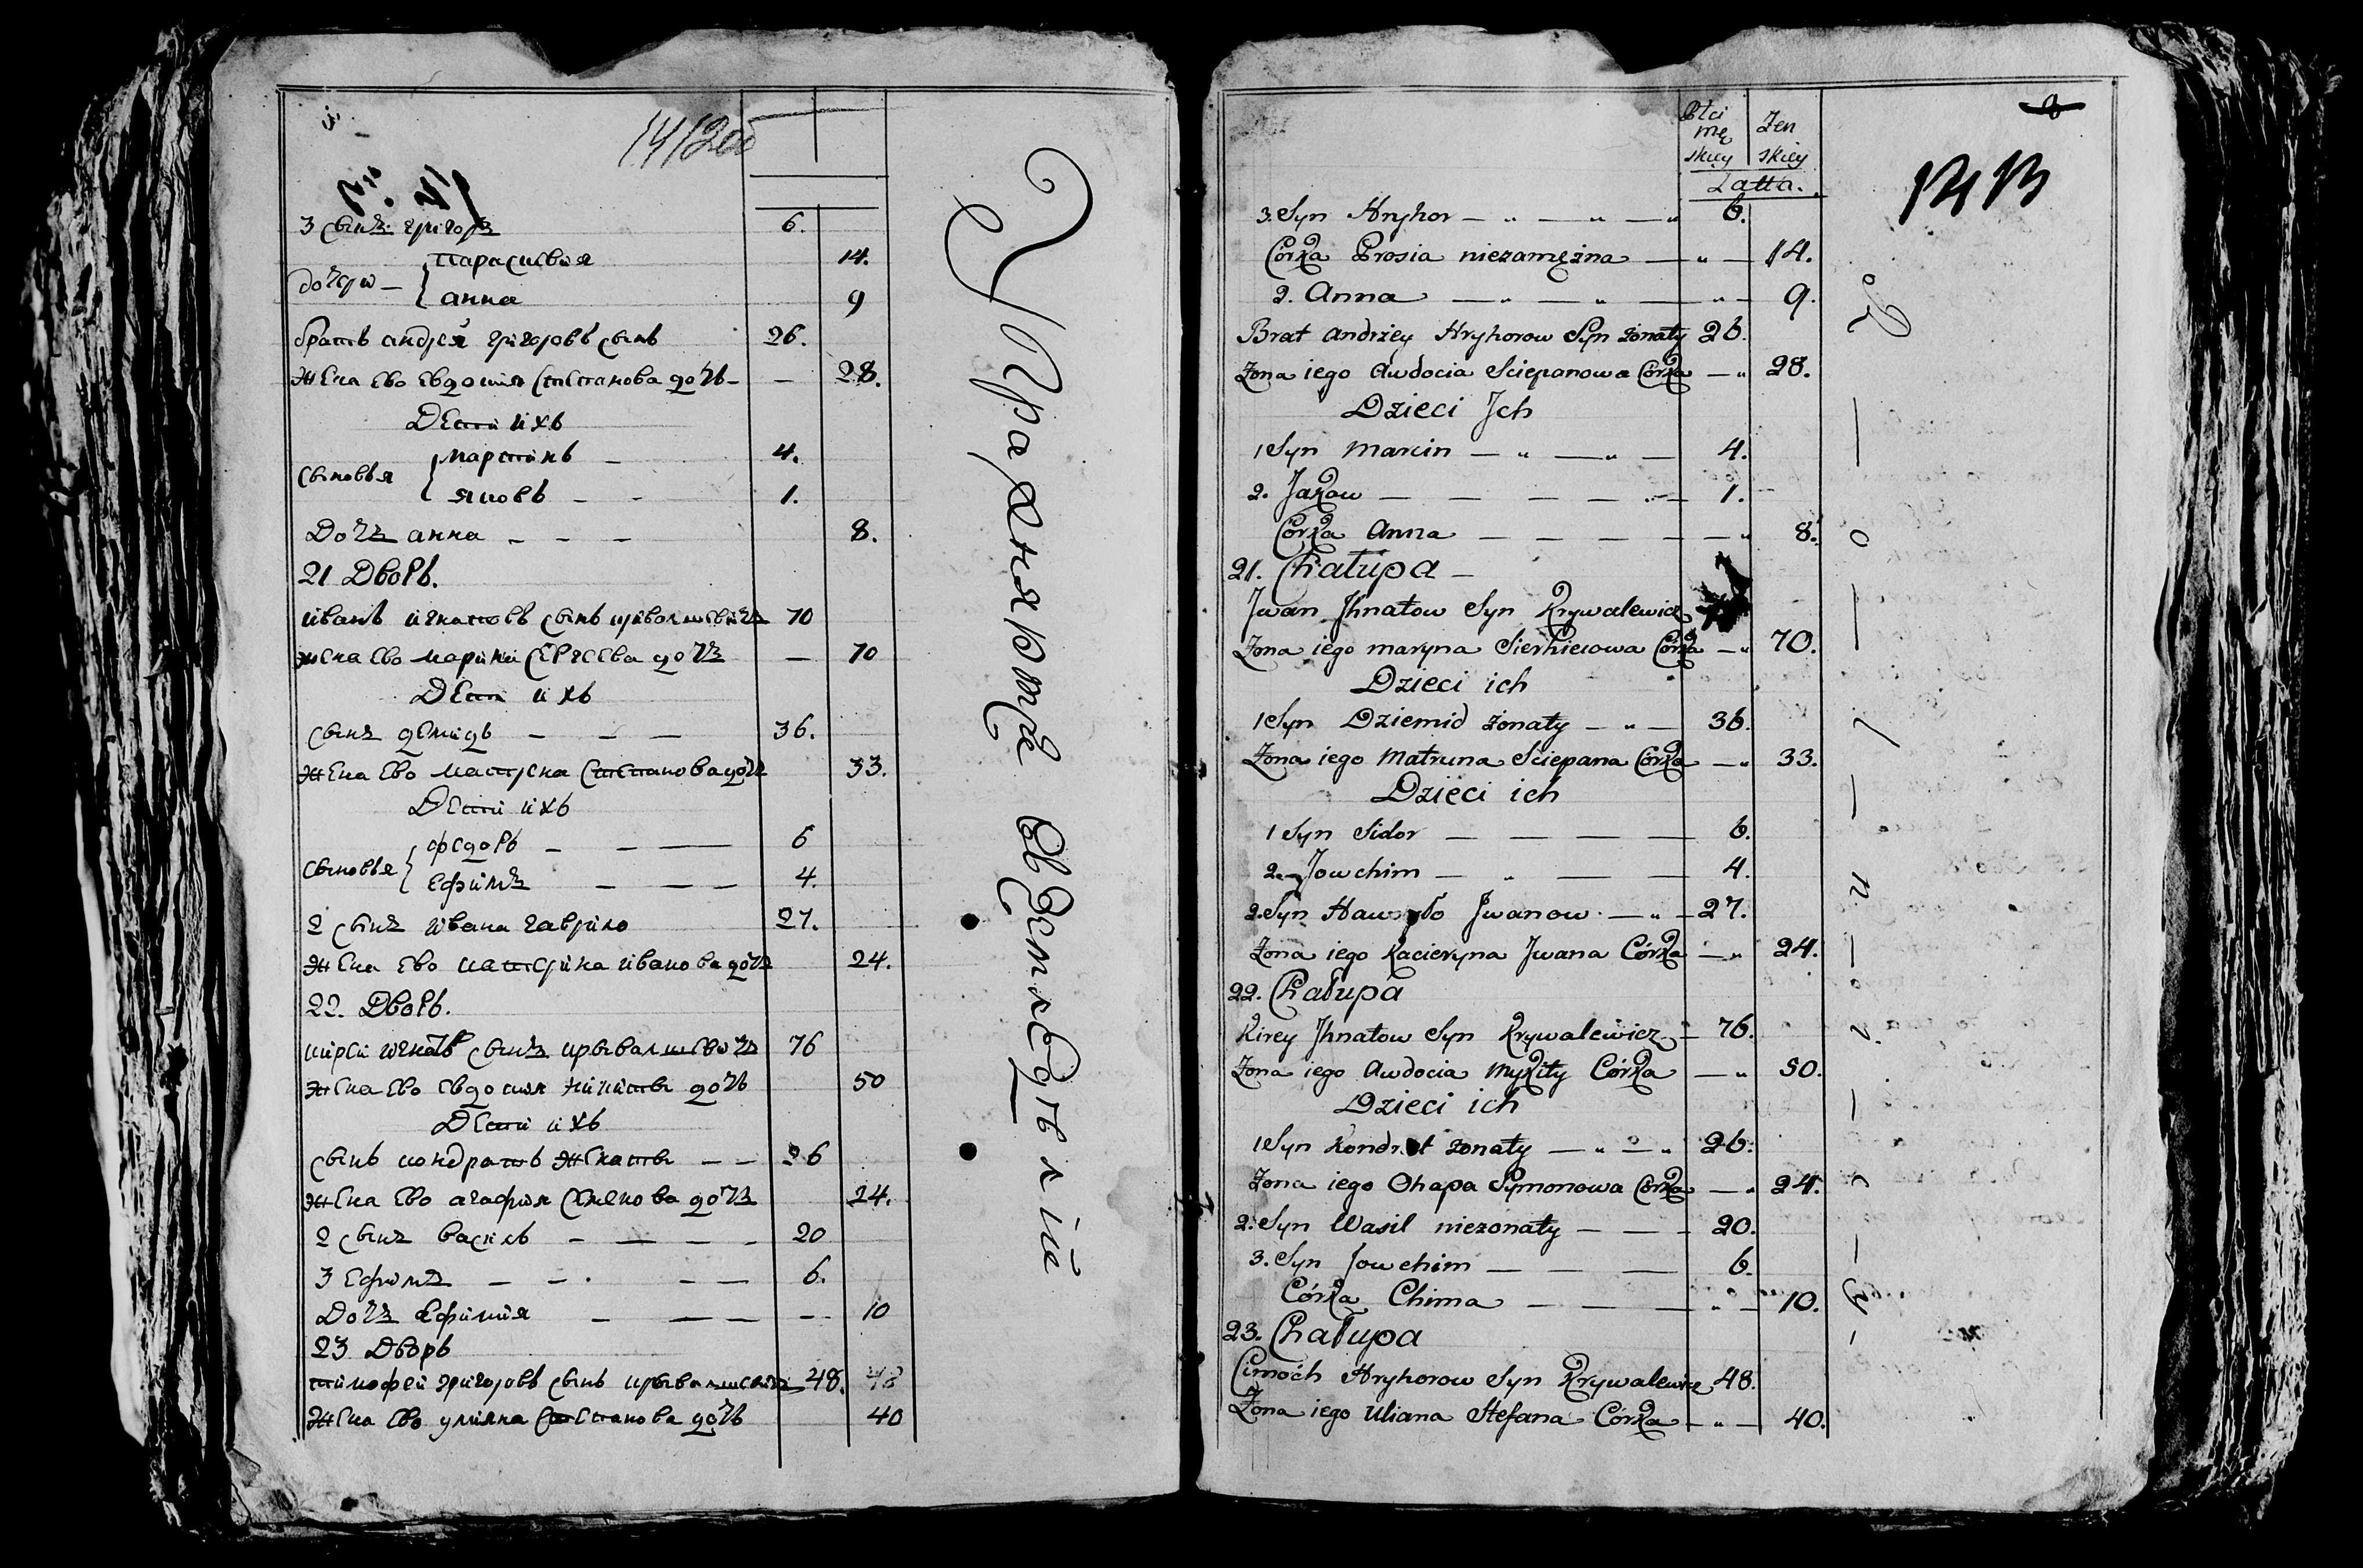 3 сынъ григоръ 6.
дочери { парасковья 14.
анна 9
братъ андрей григоровъ сынъ 26.
жена ево евдокия степанова дочь — 28.
Дети ихъ
сыновья { мартинъ — 4.
яковъ — 1.
Дочъ анна — 8.
21 Дворъ.
иванъ игнатовъ сынъ кривалевичъ 70
жена ево марина сергеева дочъ — 70
Дети ихъ
сынъ демидъ — 36.
жена ево матрена степанова дочь 33.
Дети ихъ
сыновья { федоръ — 6
ефимъ — 4.
2 сынъ ивана гаврило 27.
жена ево катерина иванова дочь 24.
22. Дворъ.
кирей игнатовъ сынъ крывалевичъ 76
жена ево евдокия никиты дочь 50
Дети ихъ
сынъ кондратъ женаты — 26
жена ево агафия дочъ 24.
2 сынъ василь — 20
3 ефимъ — 6.
Дочъ ефимия — 10
23 Дворъ
тимофей григоровъ сынъ крывалевичъ 48. 48
жена ево уляна степанова дочь 40
Płci mę skiey Żen skiey
Latta.
3. Syn Hryhor — „ — „ — „ 6.
Córka Prosia niezamężna — „ — 14.
2. Anna — „ — „ — „ — 9.
Brat Andrzey Hryhorow Syn żonaty 26.
Żona iego Awdocia Sciepanowa Córka — „ 28.
Dzieci Jch
1 Syn Marcin — „ — „ — 4.
2. Jakow — — — — „ — 1.
Córka Anna — — — — — „ 8.
21. Chałupa —
Jwan Jhnatow Syn Krywalewicz
Żona iego maryna Sierhieiowa Córka — „ 70.
Dzieci ich
1 Syn Dziemid żonaty — „ — 36.
Żona iego Matruna Sciepana Córka — „ 33.
Dzieci ich
1 Syn Sidor — — — — 6.
2. Jowchim — „ — — 4.
2. Syn Hawryło Jwanow — „ — 27.
Żona iego Kacieryna Jwana Córka — „ 24.
22. Chałupa
Kirey Jhnatow Syn Krywalewicz — 76.
Żona iego Awdocia Mykity Córka — „ 50.
Dzieci ich
1 Syn Kondrat żonaty — „ — „ 26.
Żona iego Ohapa Symonowa Córka — „ 24.
2. Syn Wasil nieżonaty — — — 20.
3. Syn Jowchim — — — 6.
Córka Chima — — — „ — 10.
23. Chałupa
Cimoch Hryhorow Syn Krywalewicz 48.
Żona iego Uliana Stefana Córka — „ — 40.